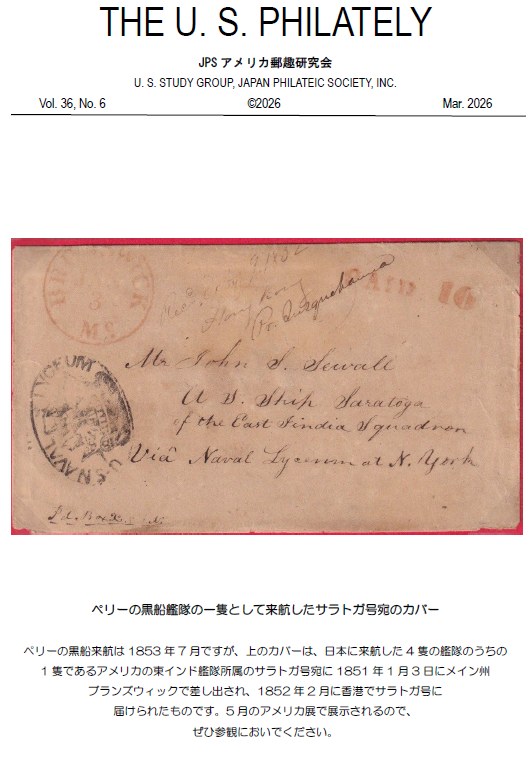 THE U. S. PHILATELY
JPS アメリカ郵趣研究会
U. S. STUDY GROUP, JAPAN PHILATEIC SOCIETY, INC.
Vol. 36, No. 6 ©2026 Mar. 2026
BRUNSWICK
3
ME
PAID 10
1852
Hong Kong
Pr. Susquehanna
Mr John S. Sewall
U. S. Ship Saratoga
of the East India Squadron
Viâ Naval Lyceum at N. York
U.S. NAVAL LYCEUM
ペリーの黒船艦隊の一隻として来航したサラトガ号宛のカバー
ペリーの黒船来航は 1853 年 7 月ですが、上のカバーは、日本に来航した 4 隻の艦隊のうちの
1 隻であるアメリカの東インド艦隊所属のサラトガ号宛に 1851 年 1 月 3 日にメイン州
ブランズウィックで差し出され、1852 年 2 月に香港でサラトガ号に
届けられたものです。5 月のアメリカ展で展示されるので、
ぜひ参観においでください。